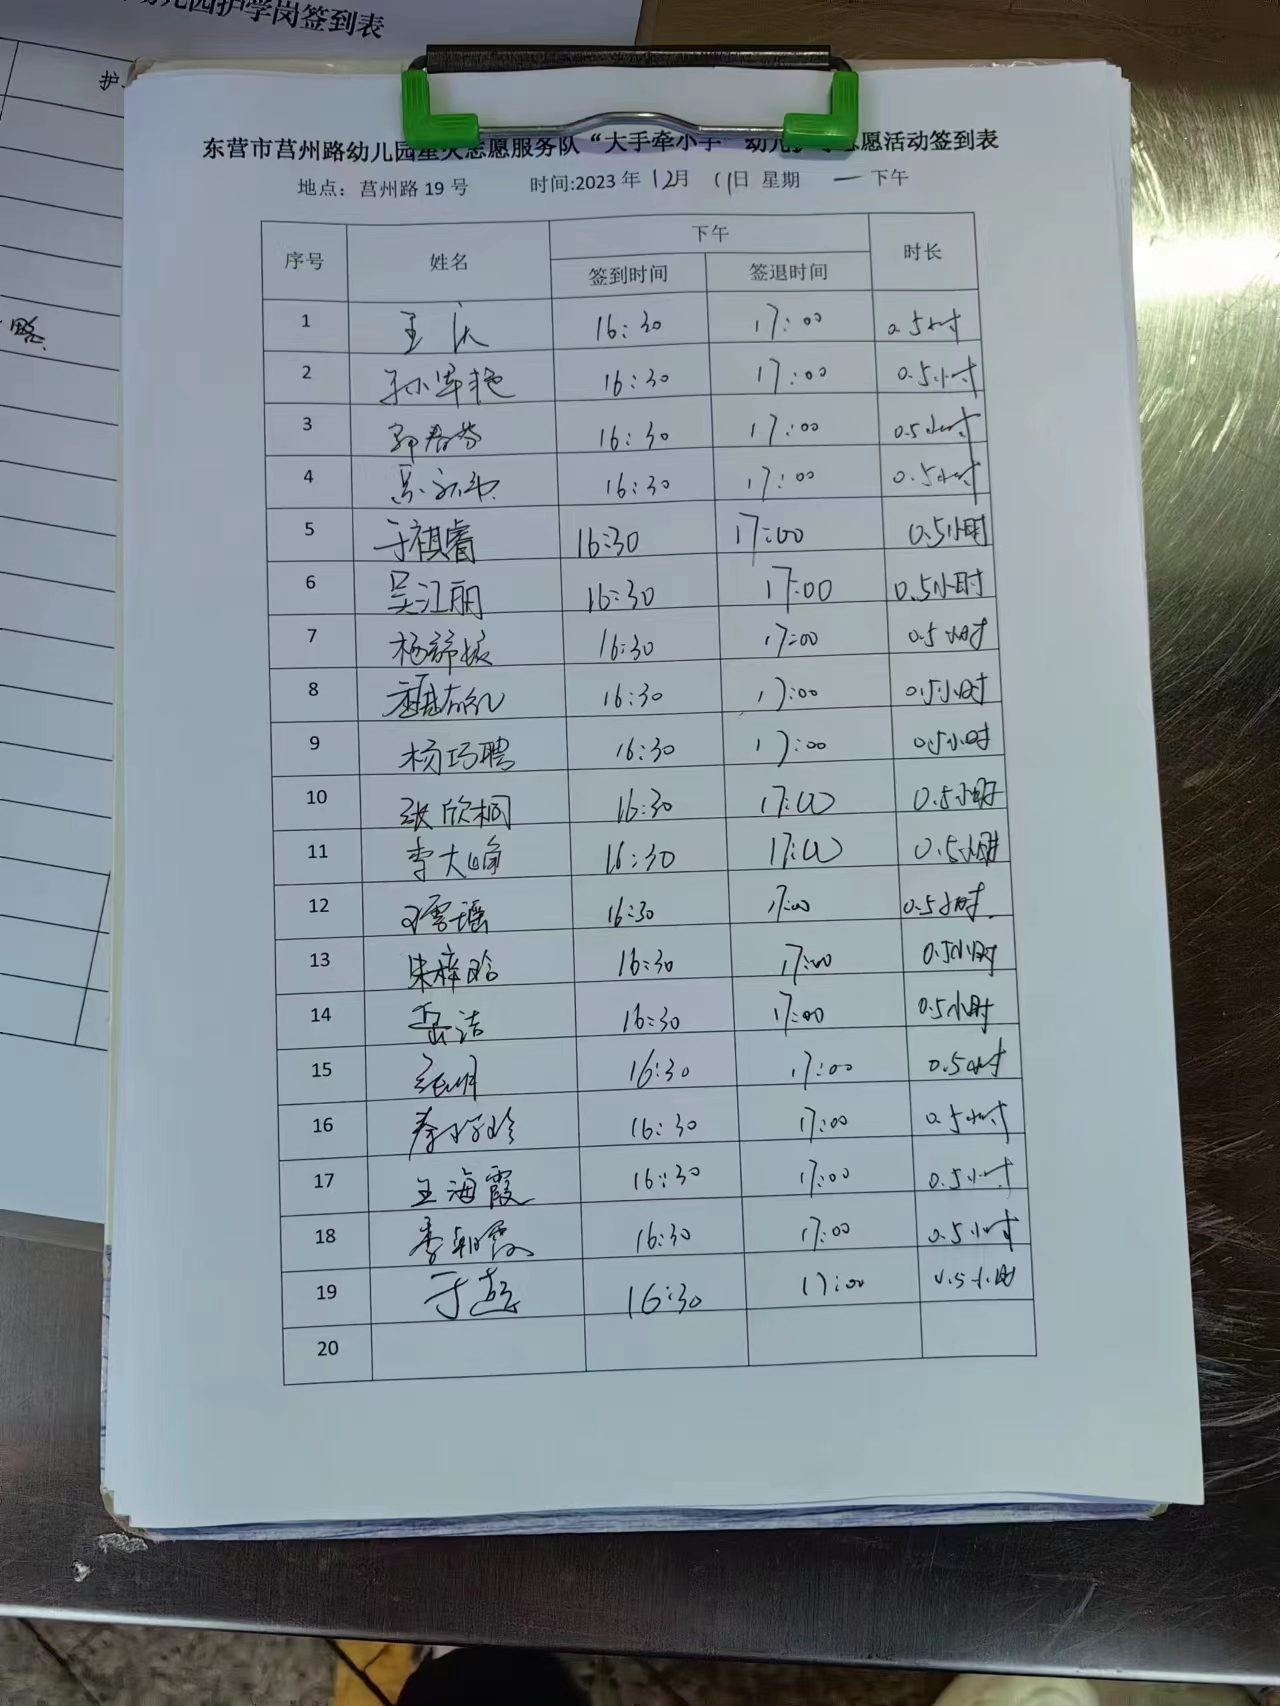 幼儿园护学岗签到表
护
略
东营市莒州路幼儿园星火志愿服务队“大手牵小手”幼儿 志愿活动签到表
地点：莒州路 19 号 时间:2023 年 12月 11日 星期 一 下午
序号 姓名 下午 时长
签到时间 签退时间
1 王 16:30 17:00 0.5小时
2 孙军艳 16:30 17:00 0.5小时
3 16:30 17:00 0.5小时
4 16:30 17:00 0.5小时
5 于祺睿 16:30 17:00 0.5小时
6 吴江丽 16:30 17:00 0.5小时
7 杨 16:30 17:00 0.5小时
8 16:30 17:00 0.5小时
9 杨巧聘 16:30 17:00 0.5小时
10 张欣桐 16:30 17:00 0.5小时
11 李大峰 16:30 17:00 0.5小时
12 16:30 17:00 0.5小时.
13 朱梓晗 16:30 17:00 0.5小时
14 岳洁 16:30 17:00 0.5小时
15 16:30 17:00 0.5小时
16 秦 玲 16:30 17:00 0.5小时
17 王海霞 16:30 17:00 0.5小时
18 李朝霞 16:30 17:00 0.5小时
19 于 16:30 17:00 0.5小时
20